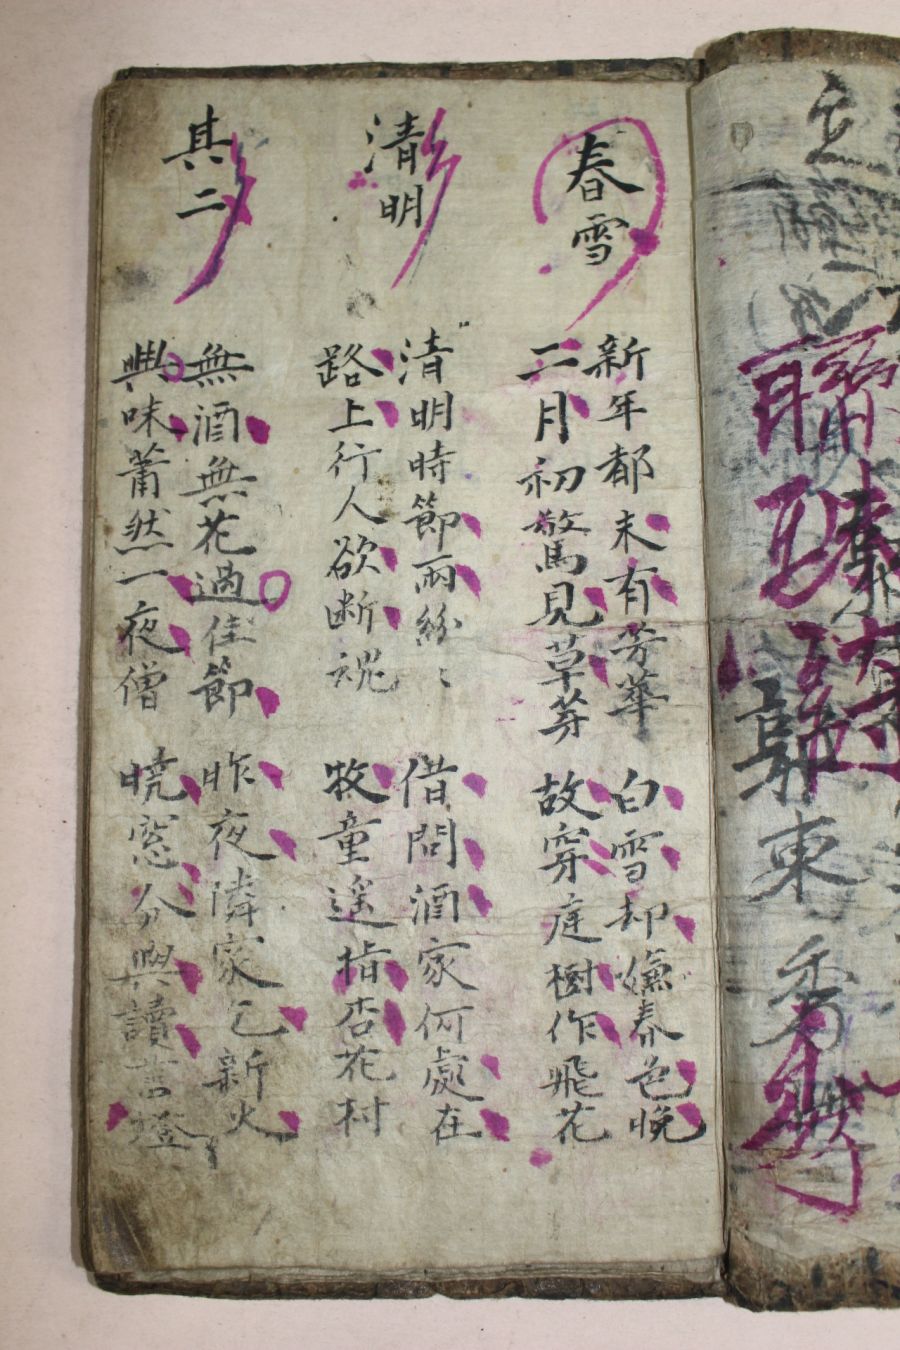 郭東秀
春雪
新年都末有芳華
二月初驚見草芽
白雪却嫌春色晚
故穿庭樹作飛花
清明
清明時節雨紛〻
路上行人欲断魂
借問酒家何處在
牧童遥指杏花村
其二
無酒無花過佳節
興味蕭然一夜僧
昨夜隣家乞新火
暁窓分與讀書燈